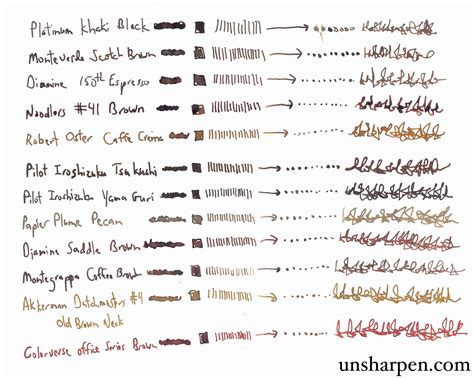 Platinum Khaki Black
Monteverde Scotch Brown
Diamine 150th Espresso
Noodlers #41 Brown
Robert Oster Caffe Crema
Pilot Iroshizuku Tsukushi
Pilot Iroshizuku Yama Guri
Papier Plume Pecan
Diamine Saddle Brown
Montegrappa Coffee Brown
Akkerman Dutchmasters #4
Old Brown Neck
Colorverse Office Series Brown
unsharpen.com